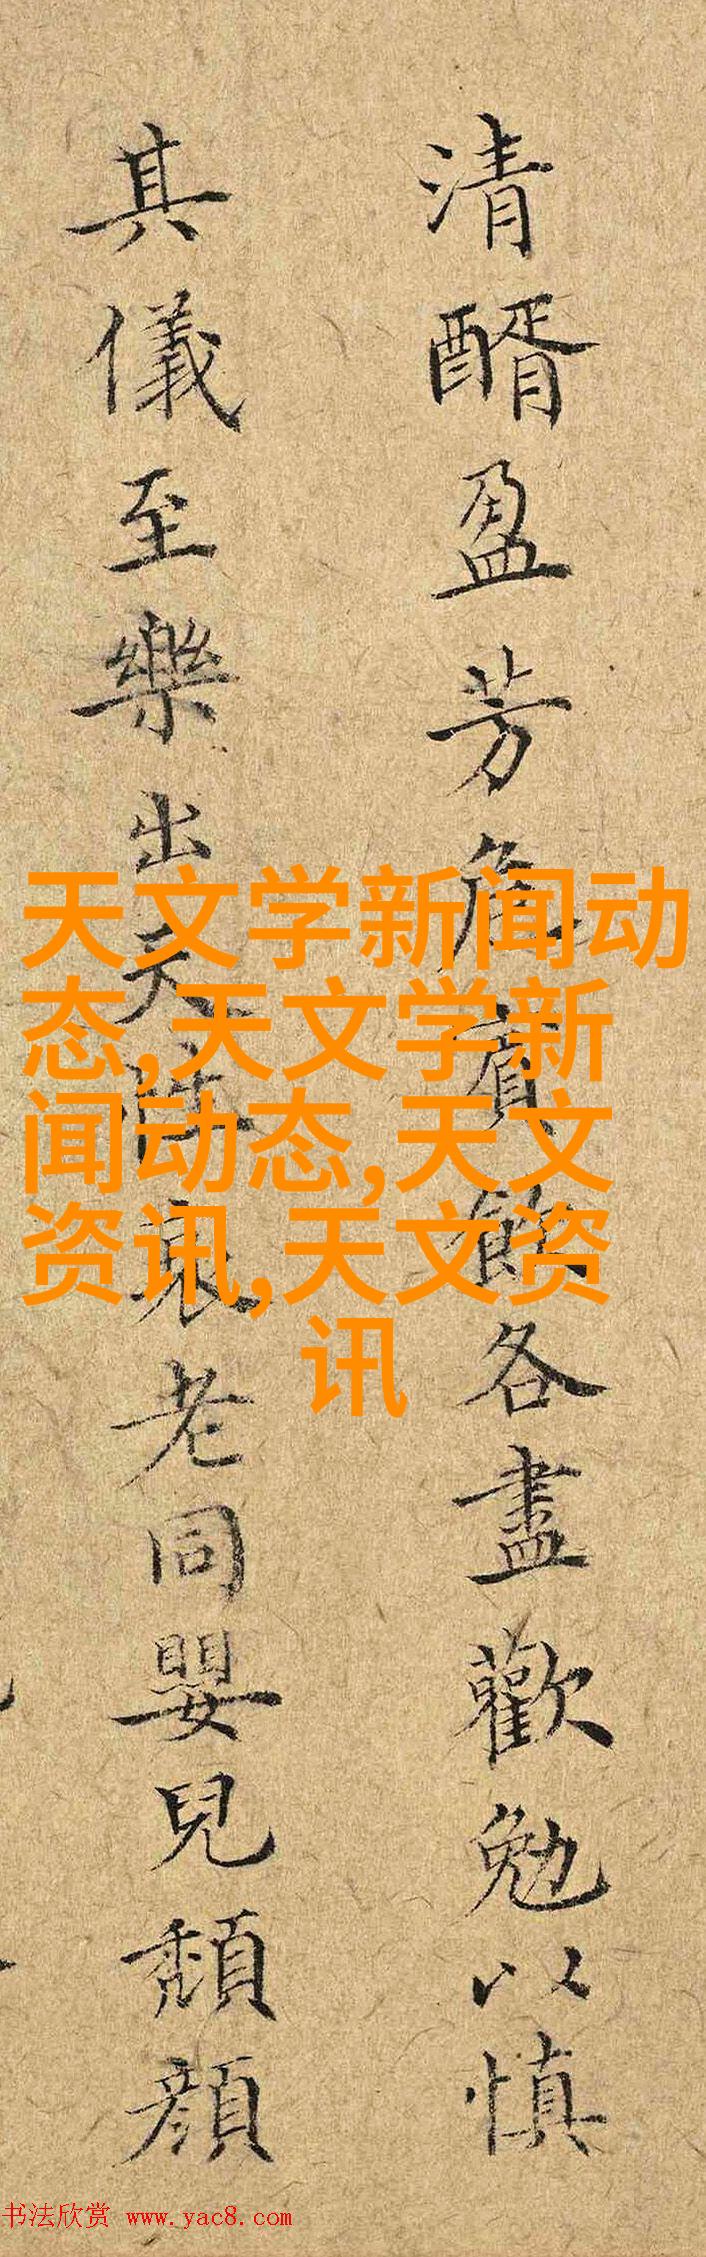 清醑盈芳賓飲各盡歡勉以慎
其儀至樂出天衰老同嬰兒頹顏
天文学新闻动
态,天文学新
闻动态,天文
资讯,天文资
讯
书法欣赏 www.yac8.com